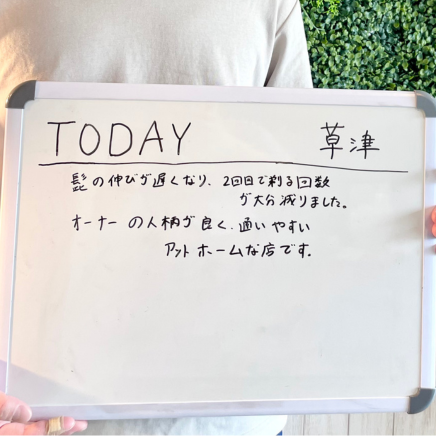 TODAY 草津
髭の伸びが遅くなり、2回目で剃る回数
が大分減りました。
オーナーの人柄が良く、通いやすい
アットホームな店です。